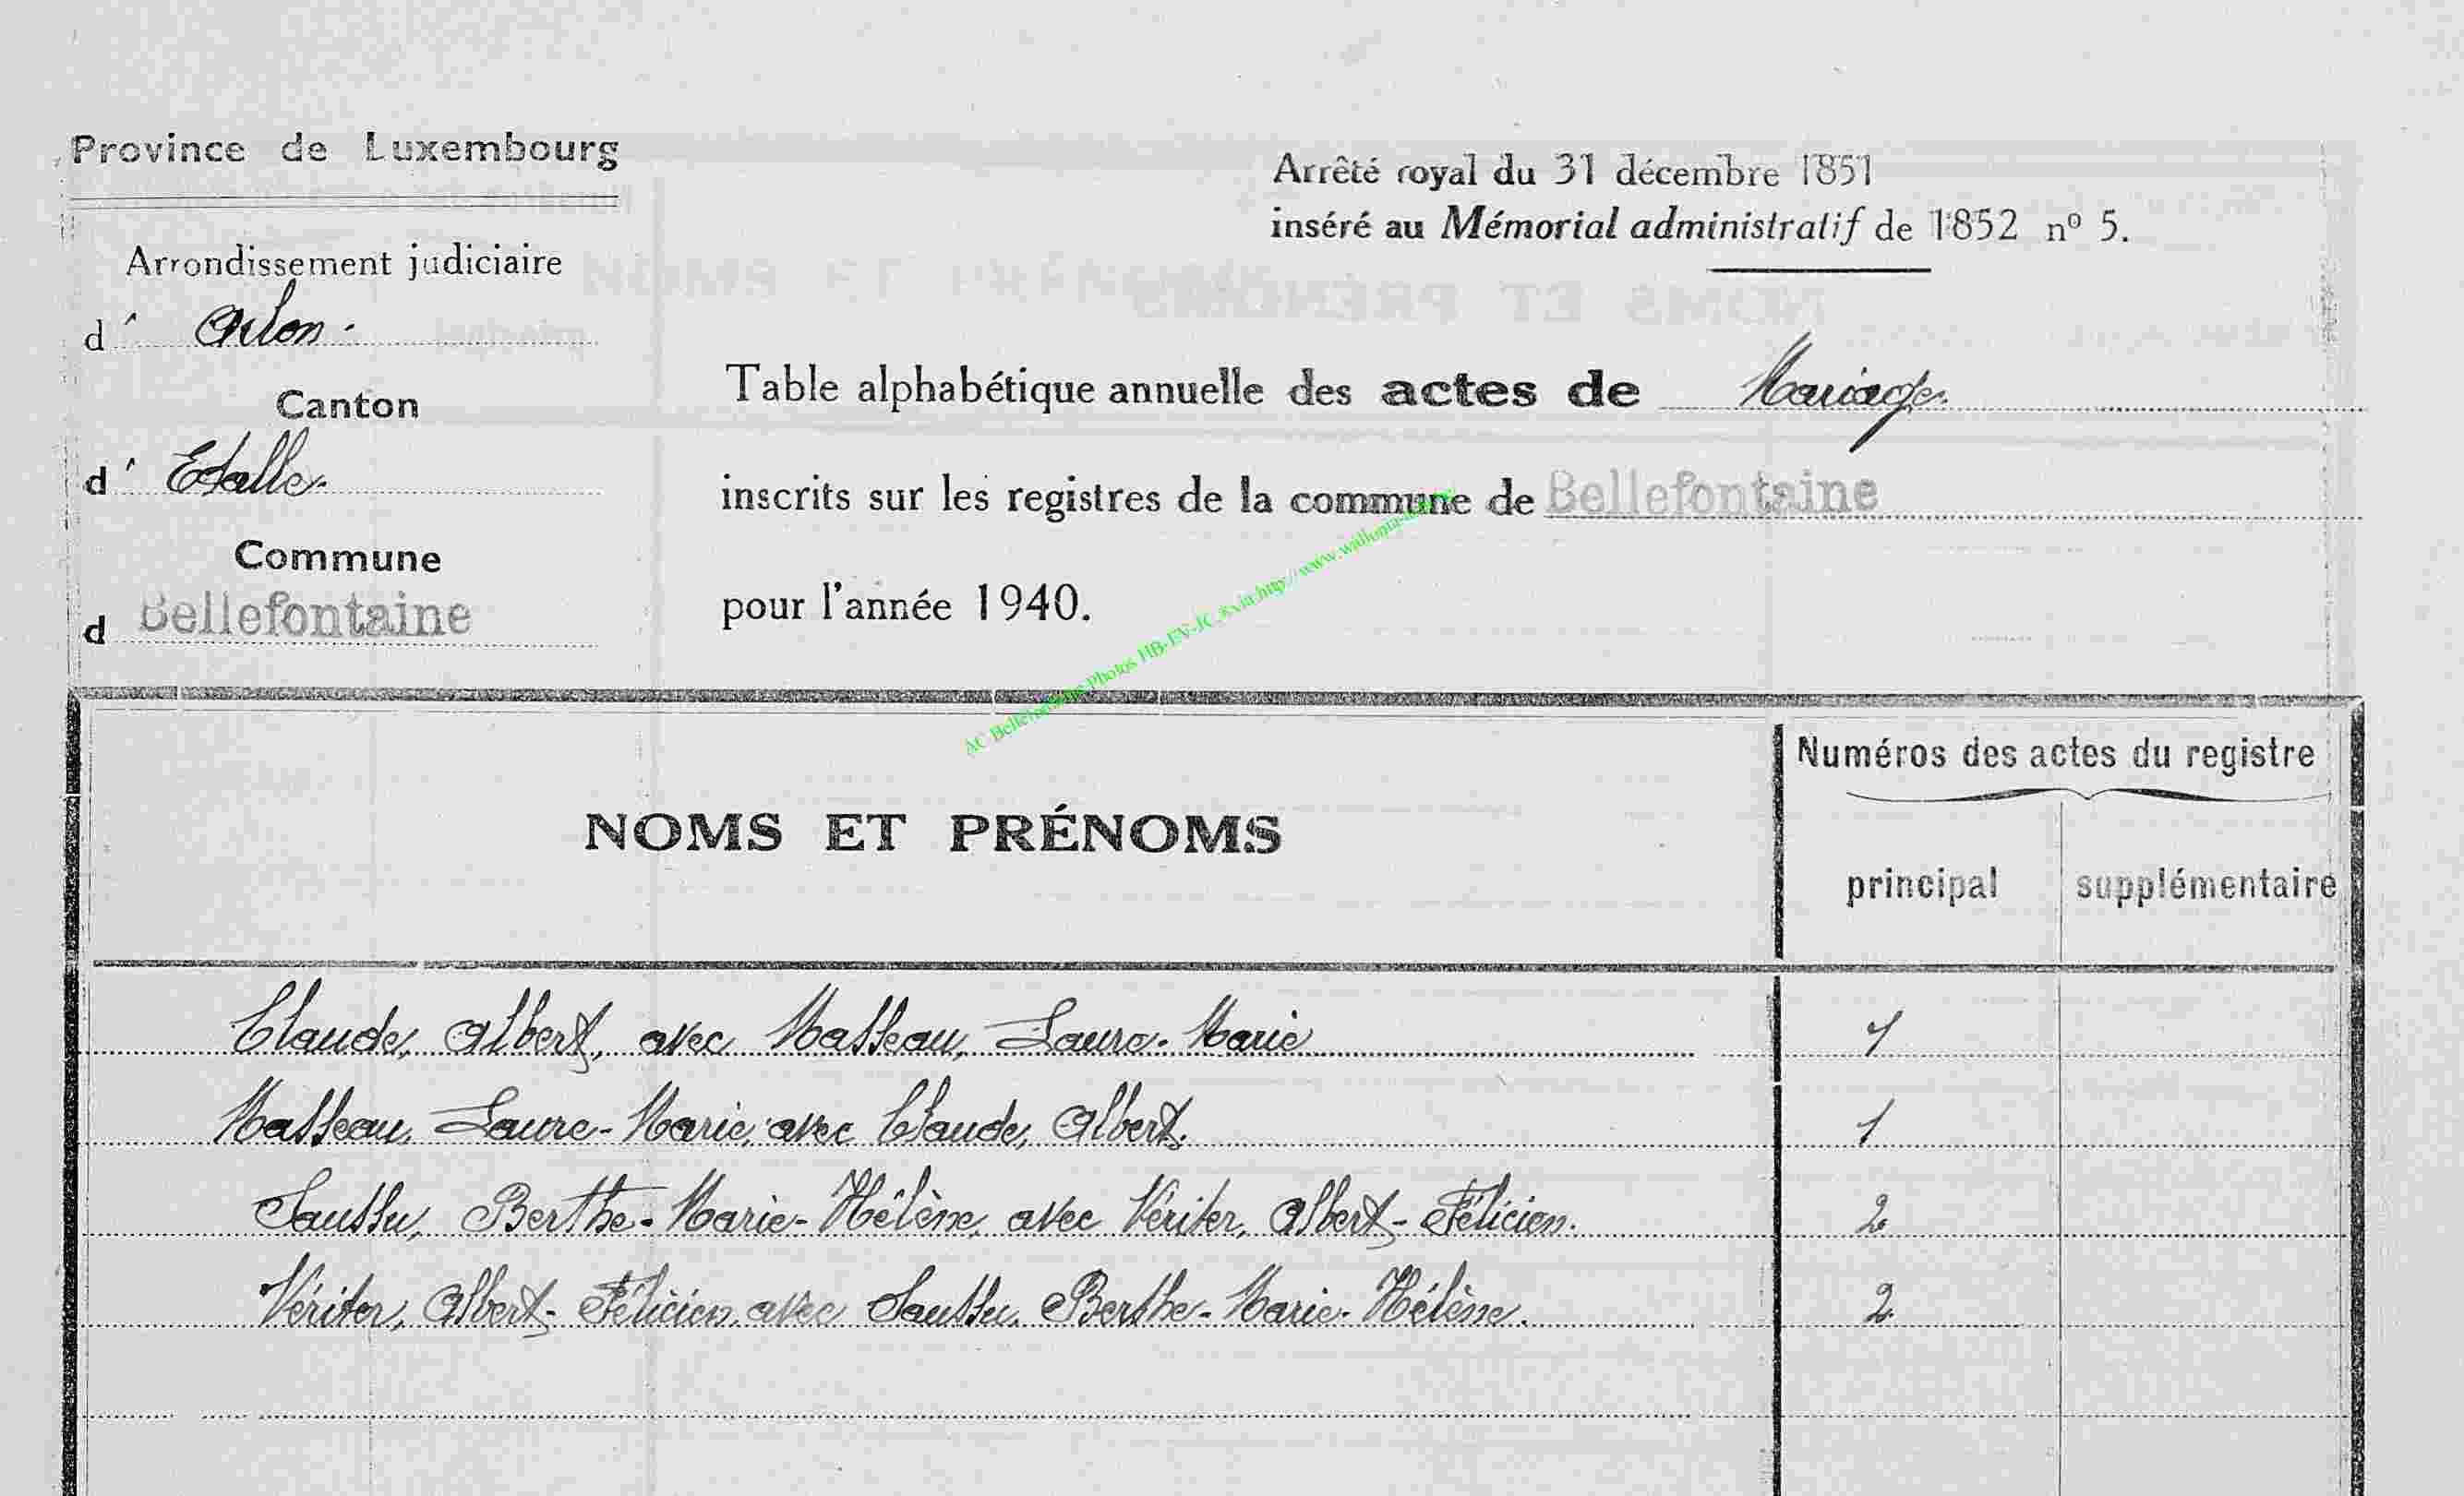 Province de Luxembourg
Arrêté royal du 31 décembre 1851
inséré au Mémorial administratif de 1852 nº 5.
Arrondissement judiciaire
d' Arlon.
Canton
d' Etalle.
Commune
d Bellefontaine
Table alphabétique annuelle des actes de Mariage.
inscrits sur les registres de la commune de Bellefontaine
pour l'année 1940.
AC Bellefontaine Photos HB-EV-JC
NOMS ET PRÉNOMS
Numéros des actes du registre
principal supplémentaire
Claude, Albert, avec Masseau, Laure-Marie 1
Masseau, Laure-Marie, avec Claude, Albert. 1
Saussu, Berthe-Marie-Hélène, avec Vériter, Albert-Félicien. 2
Vériter, Albert-Félicien, avec Saussu, Berthe-Marie-Hélène. 2